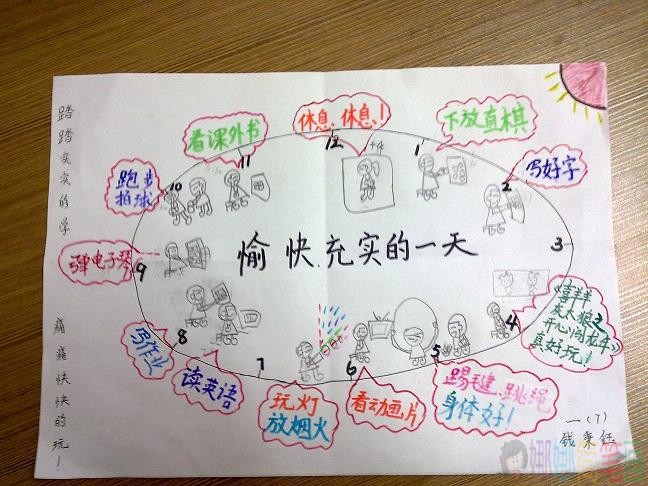 愉快充实的一天
踏踏实实的学
痛痛快快的玩!
休息、休息!
12
下放直棋
1
写好字
2
3
喜羊羊
灰太狼之
开心闯龙年
真好玩!
4
踢毽、跳绳
身体好!
5
看动画片
6
玩灯
放烟火
7
读英语
8
写作业
弹电子琴
9
跑步
拍球
10
看课外书
11
一(7)